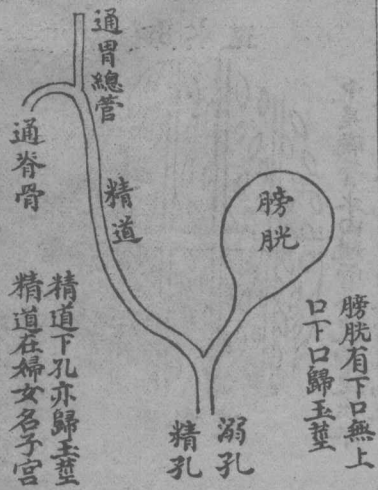 通胃總管
通脊骨
精道
膀胱
膀胱有下口無上
口下口歸玉莖
溺孔
精孔
精道下孔亦歸玉莖
精道在婦女名子宮